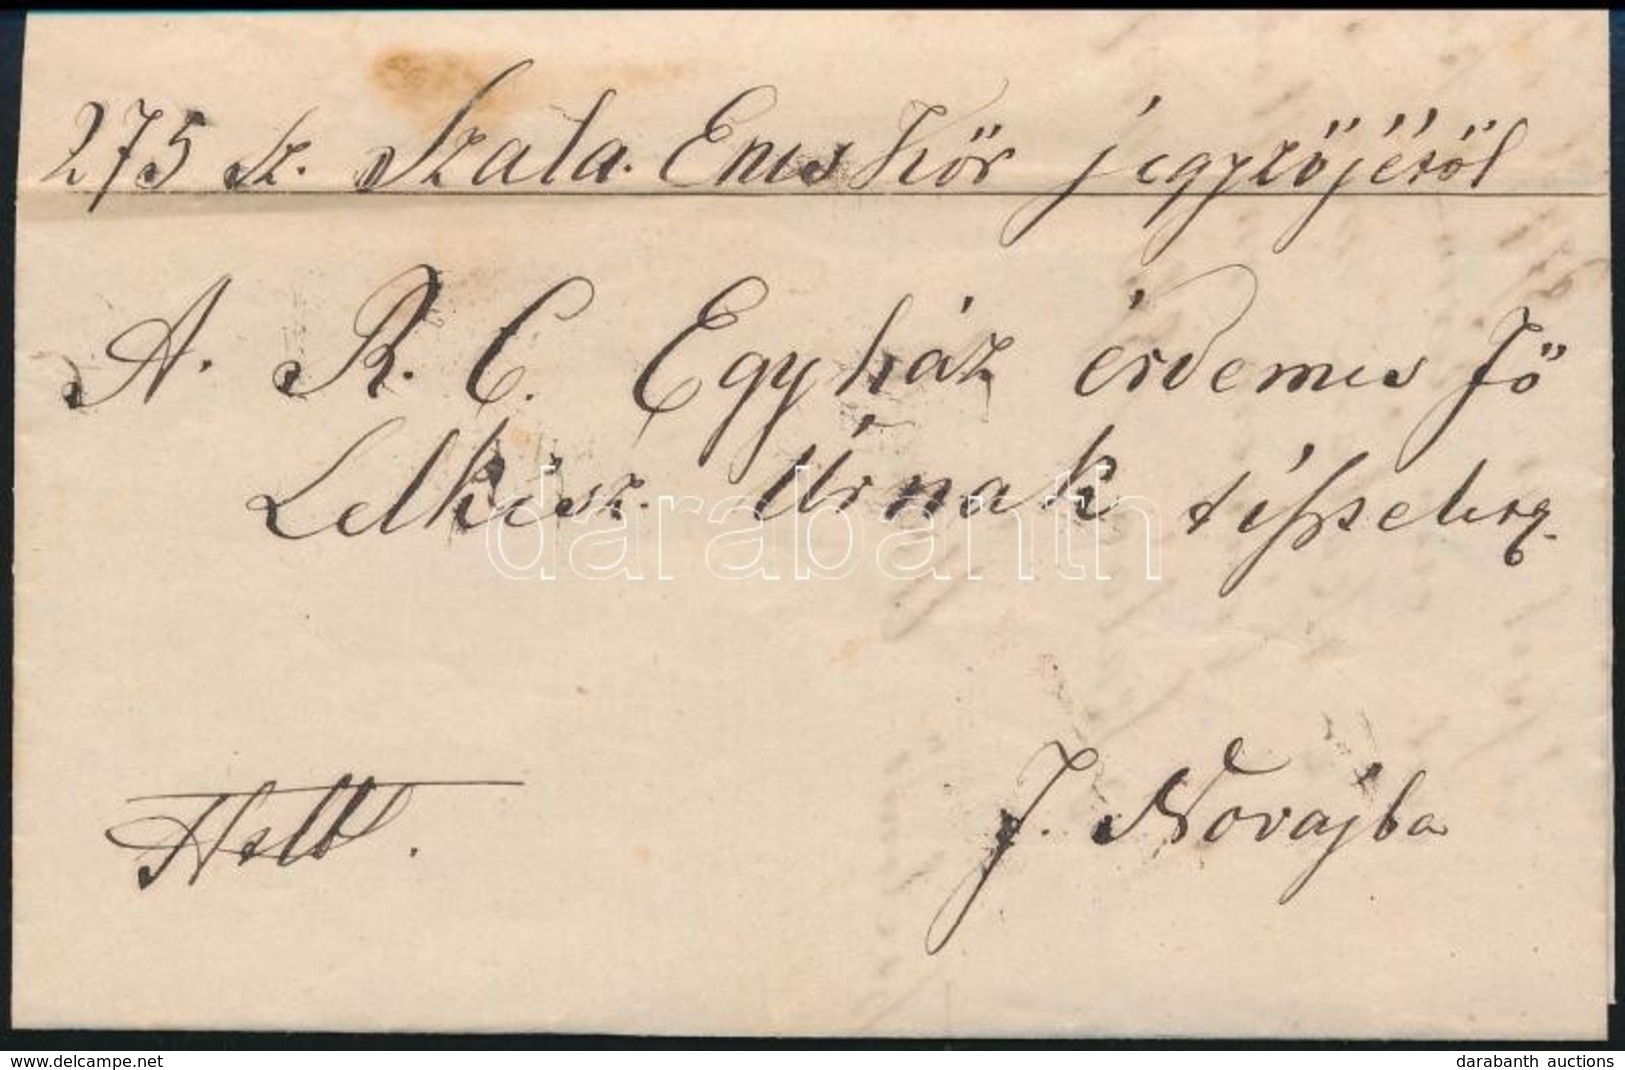 275 sz. Szala. Enes Kör jegyzőjéröl
A. R. C. Egyház érdemes Fő
Lelkész. Úrnak
J. Novajba
darabanth
www.delcampe.net
darabanth auctions